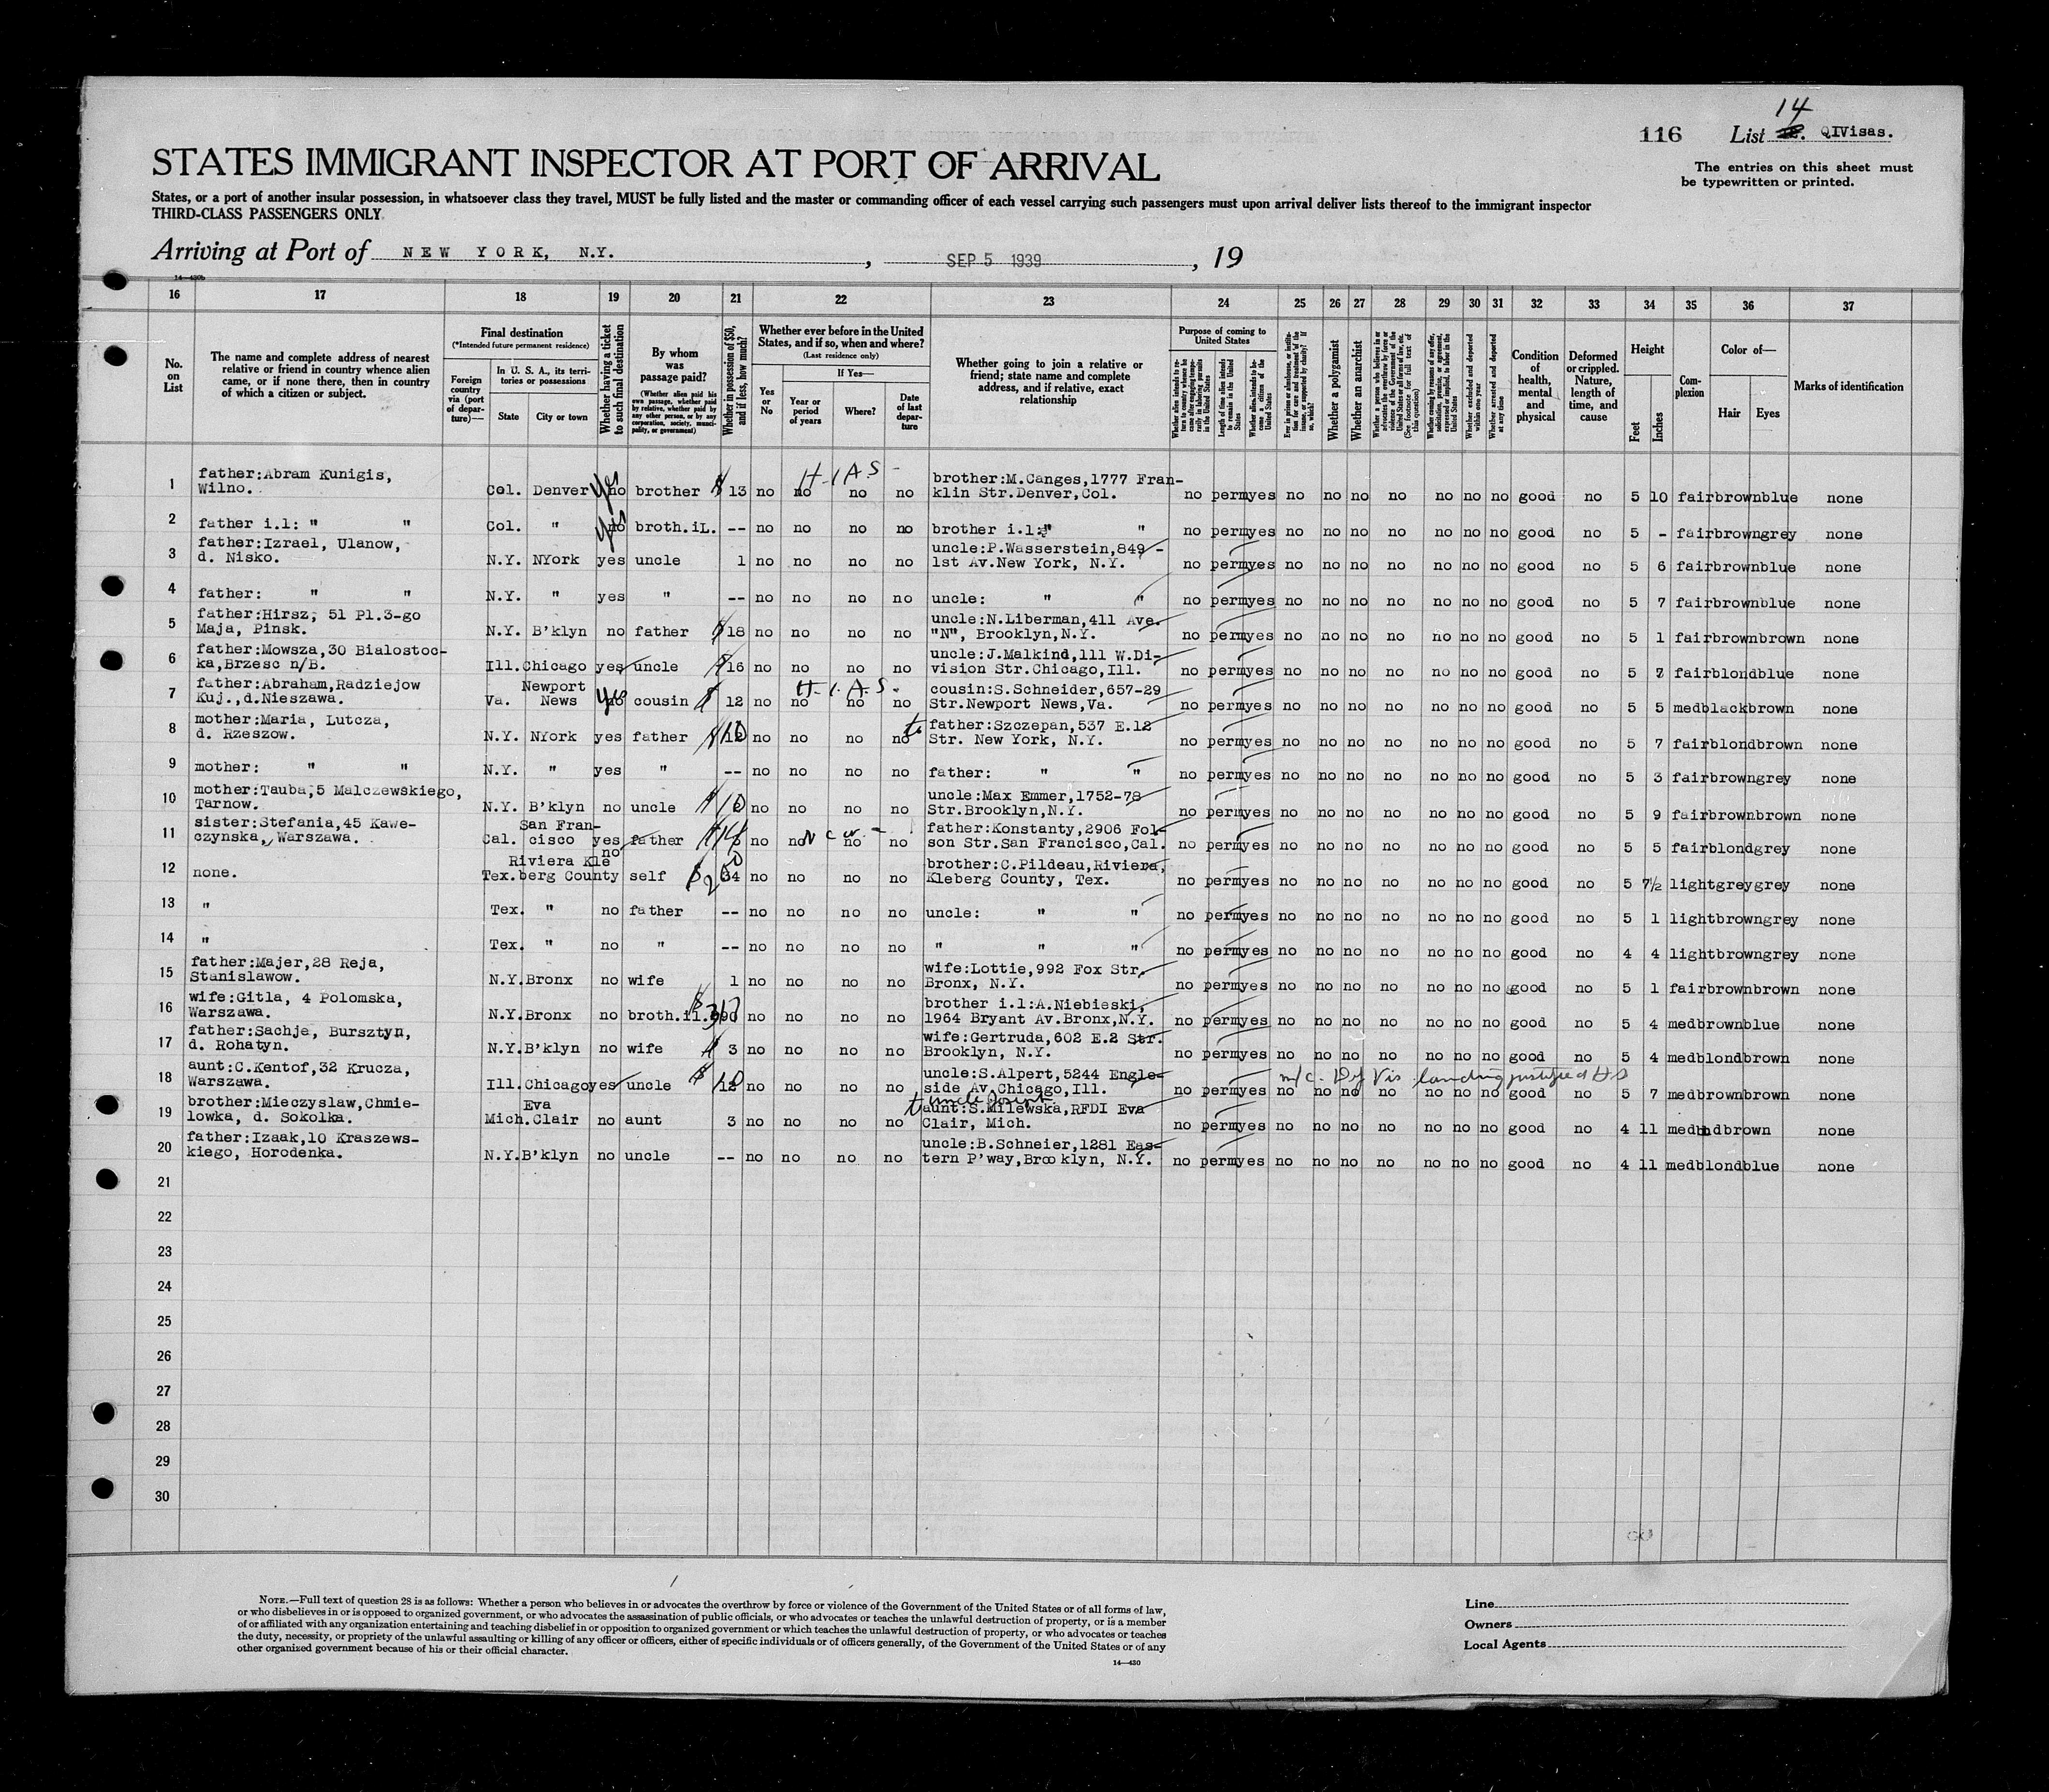 14
116 List QIVisas.
STATES IMMIGRANT INSPECTOR AT PORT OF ARRIVAL
The entries on this sheet must
be typewritten or printed.
States, or a port of another insular possession, in whatsoever class they travel, MUST be fully listed and the master or commanding officer of each vessel carrying such passengers must upon arrival deliver lists thereof to the immigrant inspector
THIRD-CLASS PASSENGERS ONLY
Arriving at Port of NEW YORK, N.Y. , SEP 5 1939 , 19
14—430b
16 17 18 19 20 21 22 23 24 25 26 27 28 29 30 31 32 33 34 35 36 37
No. on List
The name and complete address of nearest relative or friend in country whence alien came, or if none there, then in country of which a citizen or subject.
Final destination
(*Intended future permanent residence)
Foreign country via (port of departure)—
In U. S. A., its territories or possessions
State City or town
Whether having a ticket to such final destination
By whom was passage paid?
(Whether alien paid his own passage, whether paid by relative, whether paid by any other person, or by any corporation, society, municipality, or government)
Whether in possession of $50, and if less, how much?
Whether ever before in the United States, and if so, when and where?
(Last residence only)
Yes or No
If Yes—
Year or period of years
Where?
Date of last departure
Whether going to join a relative or friend; state name and complete address, and if relative, exact relationship
Purpose of coming to United States
Whether a polygamist
Whether an anarchist
Condition of health, mental and physical
Deformed or crippled. Nature, length of time, and cause
Height
Feet Inches
Complexion
Color of—
Hair Eyes
Marks of identification
H.I.A.S.
father:Abram Kunigis, brother:M.Canges,1777 Fran-
1 Wilno. Col. Denver Yes no brother $ 13 no no no no klin Str.Denver,Col. no perm yes no no no no no no no good no 5 10 fair brown blue none
2 father i.l: " " Col. " yes no broth.iL. -- no no no no brother i.l:" " no perm yes no no no no no no no good no 5 - fair brown grey none
father:Izrael, Ulanow, uncle:P.Wasserstein,849 -
3 d. Nisko. N.Y. NYork yes uncle 1 no no no no 1st Av.New York, N.Y. no perm yes no no no no no no no good no 5 6 fair brown blue none
4 father: " " N.Y. " yes " -- no no no no uncle: " " no perm yes no no no no no no no good no 5 7 fair brown blue none
father:Hirsz, 51 Pl.3-go uncle:N.Liberman,411 Ave.
5 Maja, Pinsk. N.Y. B'klyn no father $ 18 no no no no "N", Brooklyn,N.Y. no perm yes no no no no no no no good no 5 1 fair brown brown none
father:Mowsza,30 Bialostoc- uncle:J.Malkind,111 W.Di-
6 ka,Brzesc n/B. Ill. Chicago yes uncle $ 16 no no no no vision Str.Chicago,Ill. no perm yes no no no no no no no good no 5 fair blond blue none
father:Abraham,Radziejow Newport H.I.A.S. cousin:S.Schneider,657-29
7 Kuj.,d.Nieszawa. Va. News Yes no cousin $ 12 no no no no Str.Newport News,Va. no perm yes no no no no no no no good no 5 5 med black brown none
mother:Maria, Lutcza, father:Szczepan,537 E.12
8 d. Rzeszow. N.Y. NYork yes father $ 10 no no no no Str. New York, N.Y. no perm yes no no no no no no no good no 5 7 fair blond brown none
9 mother: " " N.Y. " yes " -- no no no no father: " " no perm yes no no no no no no no good no 5 3 fair brown grey none
mother:Tauba,5 Malczewskiego, uncle:Max Emmer,1752-78
10 Tarnow. N.Y. B'klyn no uncle $ 10 no no no no Str.Brooklyn,N.Y. no perm yes no no no no no no no good no 5 9 fair brown brown none
sister:Stefania,45 Kawe- San Fran- father:Konstanty,2906 Fol-
11 czynska, Warszawa. Cal. cisco yes father $ no no no no son Str.San Francisco,Cal. no perm yes no no no no no no no good no 5 5 fair blond grey none
Riviera Kle no brother:C.Pildeau,Riviera,
12 none. Tex. berg County self $ no no no no Kleberg County, Tex. no perm yes no no no no no no no good no 5 7½ light grey grey none
13 " Tex. " no father -- no no no no uncle: " " no perm yes no no no no no no no good no 5 1 light brown grey none
14 " Tex. " no " -- no no no no " " " no perm yes no no no no no no no good no 4 4 light brown grey none
father:Majer,28 Reja, wife:Lottie,992 Fox Str.
15 Stanislawow. N.Y. Bronx no wife 1 no no no no Bronx, N.Y. no perm yes no no no no no no no good no 5 1 fair brown brown none
wife:Gitla, 4 Polomska, brother i.l:A.Niebieski,
16 Warszawa. N.Y. Bronx no broth.il. $ no no no no 1964 Bryant Av.Bronx,N.Y. no perm yes no no no no no no no good no 5 4 med brown blue none
father:Sachje, Bursztyn, wife:Gertruda,602 E.2 Str.
17 d. Rohatyn. N.Y. B'klyn no wife $ 3 no no no no Brooklyn, N.Y. no perm yes no no no no no no no good no 5 4 med blond brown none
aunt:C.Kentof,32 Krucza, uncle:S.Alpert,5244 Engle- landing justified
18 Warszawa. Ill. Chicago yes uncle $ 10 no no no no side Av.Chicago,Ill. no perm yes no no no no no no no good no 5 7 med brown brown none
brother:Mieczyslaw,Chmie- Eva uncle aunt:S.Milewska,RFDI Eva
19 lowka, d. Sokolka. Mich. Clair no aunt 3 no no no no Clair, Mich. no perm yes no no no no no no no good no 4 11 med brown none
father:Izaak,10 Kraszews- uncle:B.Schneier,1281 Eas-
20 kiego, Horodenka. N.Y. B'klyn no uncle -- no no no no tern P'way,Brooklyn, N.Y. no perm yes no no no no no no no good no 4 11 med blond blue none
21
22
23
24
25
26
27
28
29
30
NOTE.—Full text of question 28 is as follows: Whether a person who believes in or advocates the overthrow by force or violence of the Government of the United States or of all forms of law,
or who disbelieves in or is opposed to organized government, or who advocates the assassination of public officials, or who advocates or teaches the unlawful destruction of property, or is a member
of or affiliated with any organization entertaining and teaching disbelief in or opposition to organized government or which teaches the unlawful destruction of property, or who advocates or teaches
the duty, necessity, or propriety of the unlawful assaulting or killing of any officer or officers, either of specific individuals or of officers generally, of the Government of the United States or of any
other organized government because of his or their official character.
14—430
Line
Owners
Local Agents